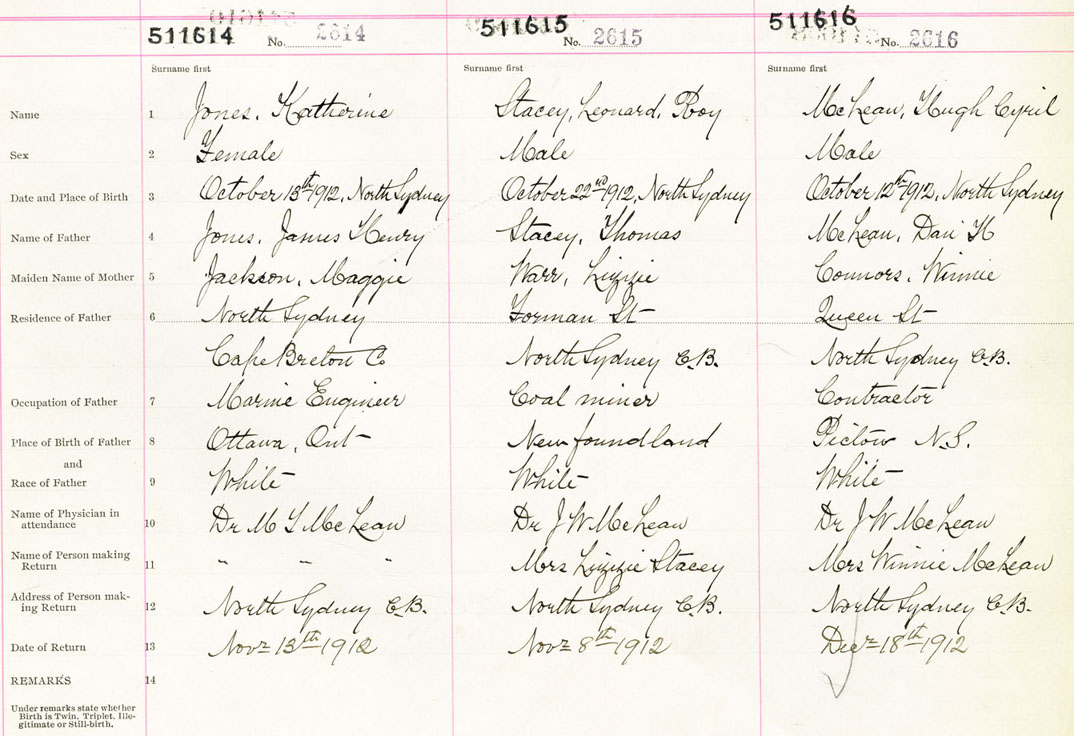 511614 No. 2614 511615 No. 2615 511616 No. 2616
Surname first Surname first Surname first
Name 1 Jones, Katherine Stacey, Leonard, Roy McLean, Hugh Cyril
Sex 2 Female Male Male
Date and Place of Birth 3 October 13th 1912, North Sydney October 22nd 1912, North Sydney October 12th 1912, North Sydney
Name of Father 4 Jones, James Henry Stacey, Thomas McLean, Dan H
Maiden Name of Mother 5 Jackson, Maggie Warr, Lizzie Connors, Winnie
Residence of Father 6 North Sydney Forman St Queen St
Cape Breton Co North Sydney C.B. North Sydney C.B.
Occupation of Father 7 Marine Engineer Coal miner Contractor
Place of Birth of Father 8 Ottawa, Ont Newfoundland Pictou N.S.
and
Race of Father 9 White White White
Name of Physician in
attendance 10 Dr M McLean Dr J W McLean Dr J W McLean
Name of Person making
Return 11 " " " Mrs Lizzie Stacey Mrs Winnie McLean
Address of Person mak-
ing Return 12 North Sydney C.B. North Sydney C.B. North Sydney C.B.
Date of Return 13 Novr 13th 1912 Novr 8th 1912 Decr 18th 1912
REMARKS 14
Under remarks state whether
Birth is Twin, Triplet, Ille-
gitimate or Still-birth.